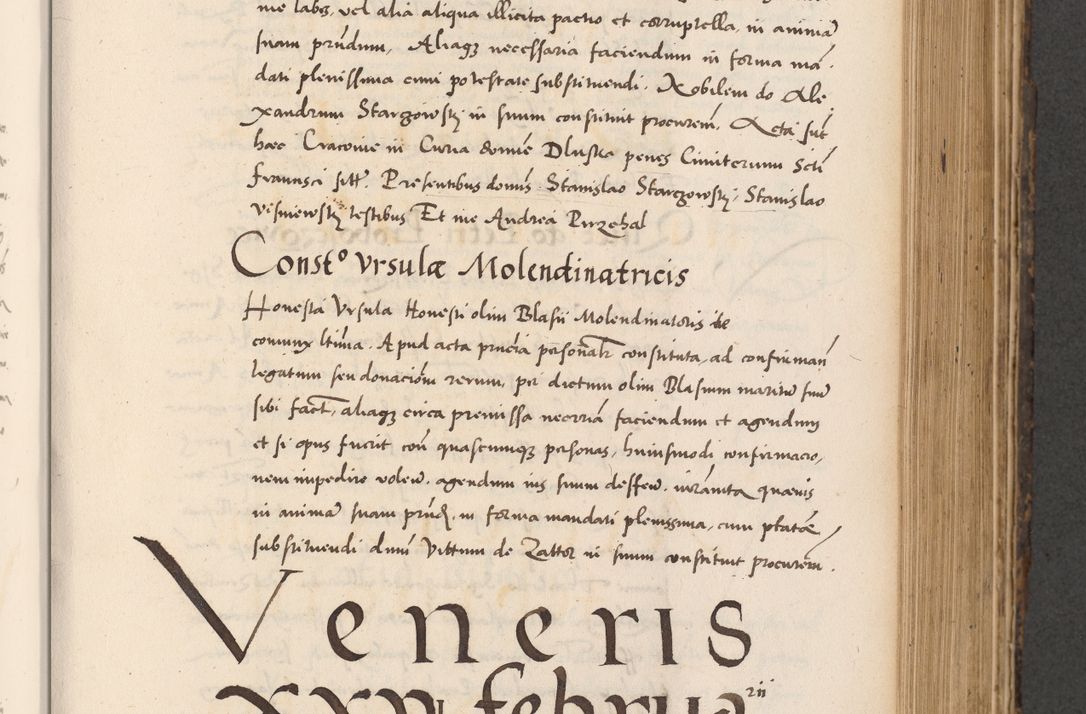 me labo, vel alia aliqua illicita pactio et corruptella, in animā
suam prn̄dum, Aliaqȝ necessaria faciendum in forma mā-
dati plenissima cum potestate substituendi. Nobilem do Ale
xandrum Stargowskj in suum constituit procurem̄. Acta sūt
haec Cracovie in Curia domus Dluska penes Cimiterium Scti
Francisci sitā. Presentibus domīs Stanislao Stargowskj, Stanislao
Visniewskj testibus Et me Andrea Przehal
Constº Vrsulæ Molendinatricis
Honesta Vrsula Honesti olim Blasii Molendinatoris de
coniunx ltīma. Apud acta prn̄cia personalr̄ constituta, ad confirman̄
legatum seu donaciom̄ rerum, per dictum olim Blasium maritū suū
sibi fact̄, aliaqȝ circa premissa necorriā faciendum et agendum
et si opus fuerit con̄ quascumqȝ personas, huiusmodi confirmacio-
nem impedire volen̄. agendum ius suum deffen̄. iurām̄ta quaevis
in animā suam prn̄d. in forma mandati plenissima, cum ptāte
substituendi dnm̄ Vittum de Zattor in suum constituit procurem̄.
Veneris
xxvi februarii